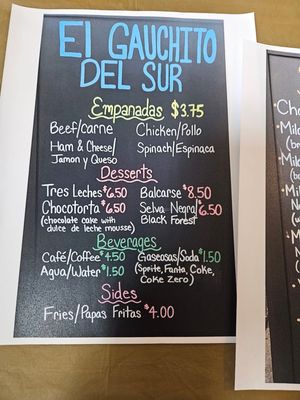 El GAUCHITO
DEL SUR
Empanadas $3.75
Beef/Carne Chicken/Pollo
Ham & Cheese/ Spinach/Espinaca
Jamon y Queso
Desserts
Tres Leches $6.50 Balcarse $8.50
Chocotorta $6.50 Selva Negra/ $6.50
(chocolate cake with Black Forest
dulce de leche mousse)
Beverages
Café/Coffee $4.50 Gaseosas/Soda $1.50
Agua/Water $1.50 (Sprite, Fanta, Coke,
Coke Zero)
Sides
Fries/Papas Fritas $4.00